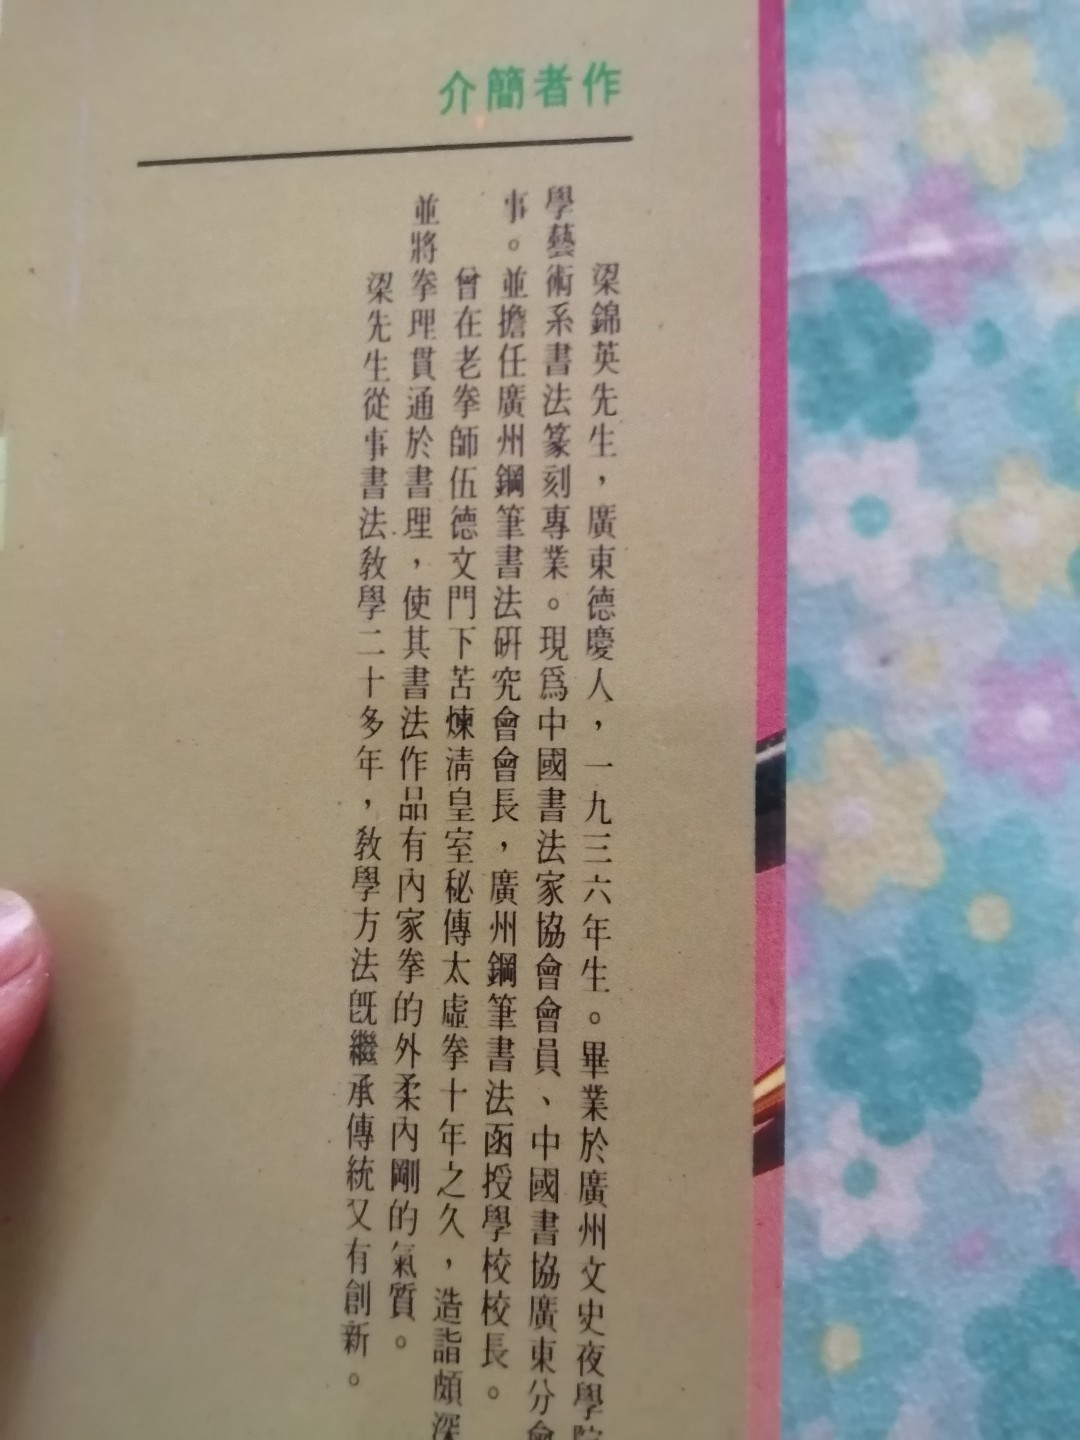 作者簡介
梁錦英先生，廣東德慶人，一九三六年生。畢業於廣州文史夜學院
學藝術系書法篆刻專業。現爲中國書法家協會會員、中國書協廣東分會
事。並擔任廣州鋼筆書法研究會會長，廣州鋼筆書法函授學校校長。
曾在老拳師伍德文門下苦煉清皇室秘傳太虛拳十年之久，造詣頗深
並將拳理貫通於書理，使其書法作品有內家拳的外柔內剛的氣質。
梁先生從事書法教學二十多年，教學方法既繼承傳統又有創新。